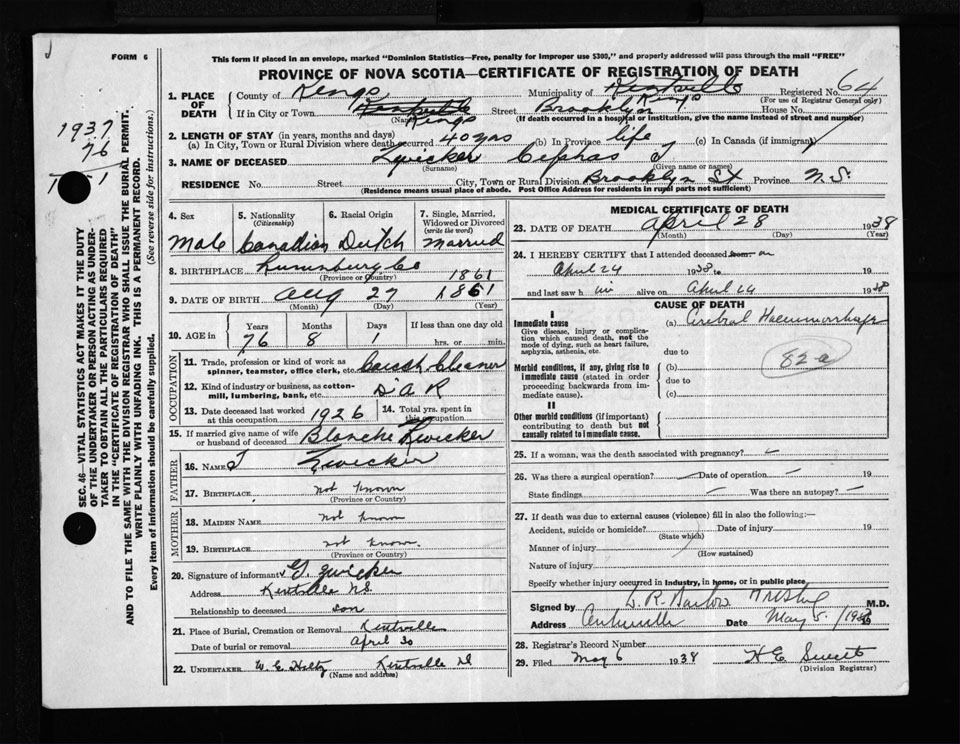 FORM 6
This form if placed in an envelope, marked "Dominion Statistics—Free, penalty for improper use $300," and properly addressed will pass through the mail "FREE"
PROVINCE OF NOVA SCOTIA—CERTIFICATE OF REGISTRATION OF DEATH
1. PLACE OF DEATH
County of Kings Municipality of Kentville Kings Registered No. 64
(For use of Registrar General only)
If in City or Town Kentville Kings Street Brooklyn House No.
(Name) (If death occurred in a hospital or institution, give the name instead of street and number)
2. LENGTH OF STAY (in years, months and days)
(a) In City, Town or Rural Division where death occurred 40 yrs (b) In Province life (c) In Canada (if immigrant)
3. NAME OF DECEASED Zwicker Cephas J
(Surname) (Given name or names)
RESIDENCE No. Street City, Town or Rural Division Brooklyn St Province N.S.
(Residence means usual place of abode. Post Office Address for residents in rural parts not sufficient)
1937
76
SEC. 46—VITAL STATISTICS ACT MAKES IT THE DUTY
OF THE UNDERTAKER OR PERSON ACTING AS UNDER-
TAKER TO OBTAIN ALL THE PARTICULARS REQUIRED
IN THE "CERTIFICATE OF REGISTRATION OF DEATH"
AND TO FILE THE SAME WITH THE DIVISION REGISTRAR WHO SHALL ISSUE THE BURIAL PERMIT.
WRITE PLAINLY WITH UNFADING INK. THIS IS A PERMANENT RECORD.
Every item of information should be carefully supplied. (See reverse side for instructions.)
4. Sex 5. Nationality (Citizenship) 6. Racial Origin 7. Single, Married, Widowed or Divorced (write the word)
Male Canadian Dutch Married
8. BIRTHPLACE Lunenburg Co
(Province or Country) 1861
9. DATE OF BIRTH Aug 27 1861
(Month) (Day) (Year)
10. AGE in Years Months Days If less than one day old
76 8 1 hrs. or min.
OCCUPATION
11. Trade, profession or kind of work as spinner, teamster, office clerk, etc. Coach Cleaner
12. Kind of industry or business, as cotton-mill, lumbering, bank, etc. D A R
13. Date deceased last worked at this occupation 1926 14. Total yrs. spent in this occupation
15. If married give name of wife or husband of deceased Blanche Zwicker
FATHER
16. NAME J Zwicker
17. BIRTHPLACE not known
(Province or Country)
MOTHER
18. MAIDEN NAME not known
19. BIRTHPLACE not known.
(Province or Country)
20. Signature of informant Zwicker
Address Kentville N.S.
Relationship to deceased son
21. Place of Burial, Cremation or Removal Kentville
Date of burial or removal April 30
22. UNDERTAKER W. E. Kentville
(Name and address)
MEDICAL CERTIFICATE OF DEATH
23. DATE OF DEATH April 28 1938
(Month) (Day) (Year)
24. I HEREBY CERTIFY that I attended deceased from on
April 24 1938 to 19
and last saw h im alive on April 24 1938
CAUSE OF DEATH
I
Immediate cause (a) Cerebral Haemorrhage
Give disease, injury or complication which caused death, not the mode of dying, such as heart failure, asphyxia, asthenia, etc.
due to
82-a
Morbid conditions, if any, giving rise to immediate cause (stated in order proceeding backwards from immediate cause). (b)
due to
(c)
II
Other morbid conditions (if important) contributing to death but not causally related to immediate cause.
25. If a woman, was the death associated with pregnancy? —
26. Was there a surgical operation? — Date of operation — 19
State findings — Was there an autopsy? —
27. If death was due to external causes (violence) fill in also the following:—
Accident, suicide or homicide? Date of injury 19
(State which)
Manner of injury
(How sustained)
Nature of injury
Specify whether injury occurred in industry, in home, or in public place
Signed by M.D.
Address Centreville Date May 5, 1938
28. Registrar's Record Number
29. Filed May 6 1938
(Division Registrar)